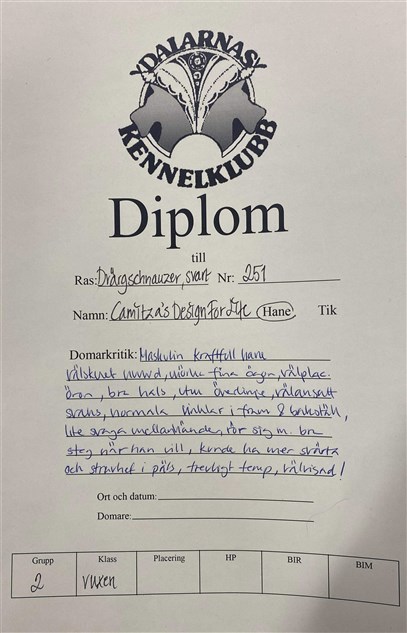 DALARNAS
KENNELKLUBB
Diplom
till
Ras: Dvärgschnauzer, svart Nr: 251
Namn: Camitza's Design For Life Hane Tik
Domarkritik: Maskulin kraftfull hane
välskuret huvud, mörka fina ögon, välplac.
öron, bra hals, utm överlinje, välansatt
svans, normala vinklar i fram & bakställ,
lite svaga mellanhänder, rör sig m. bra
steg när han vill, kunde ha mer svärta
och strävhet i päls, trevligt temp, välvisad!
Ort och datum:
Domare:
Grupp Klass Placering HP BIR BIM
2 vuxen